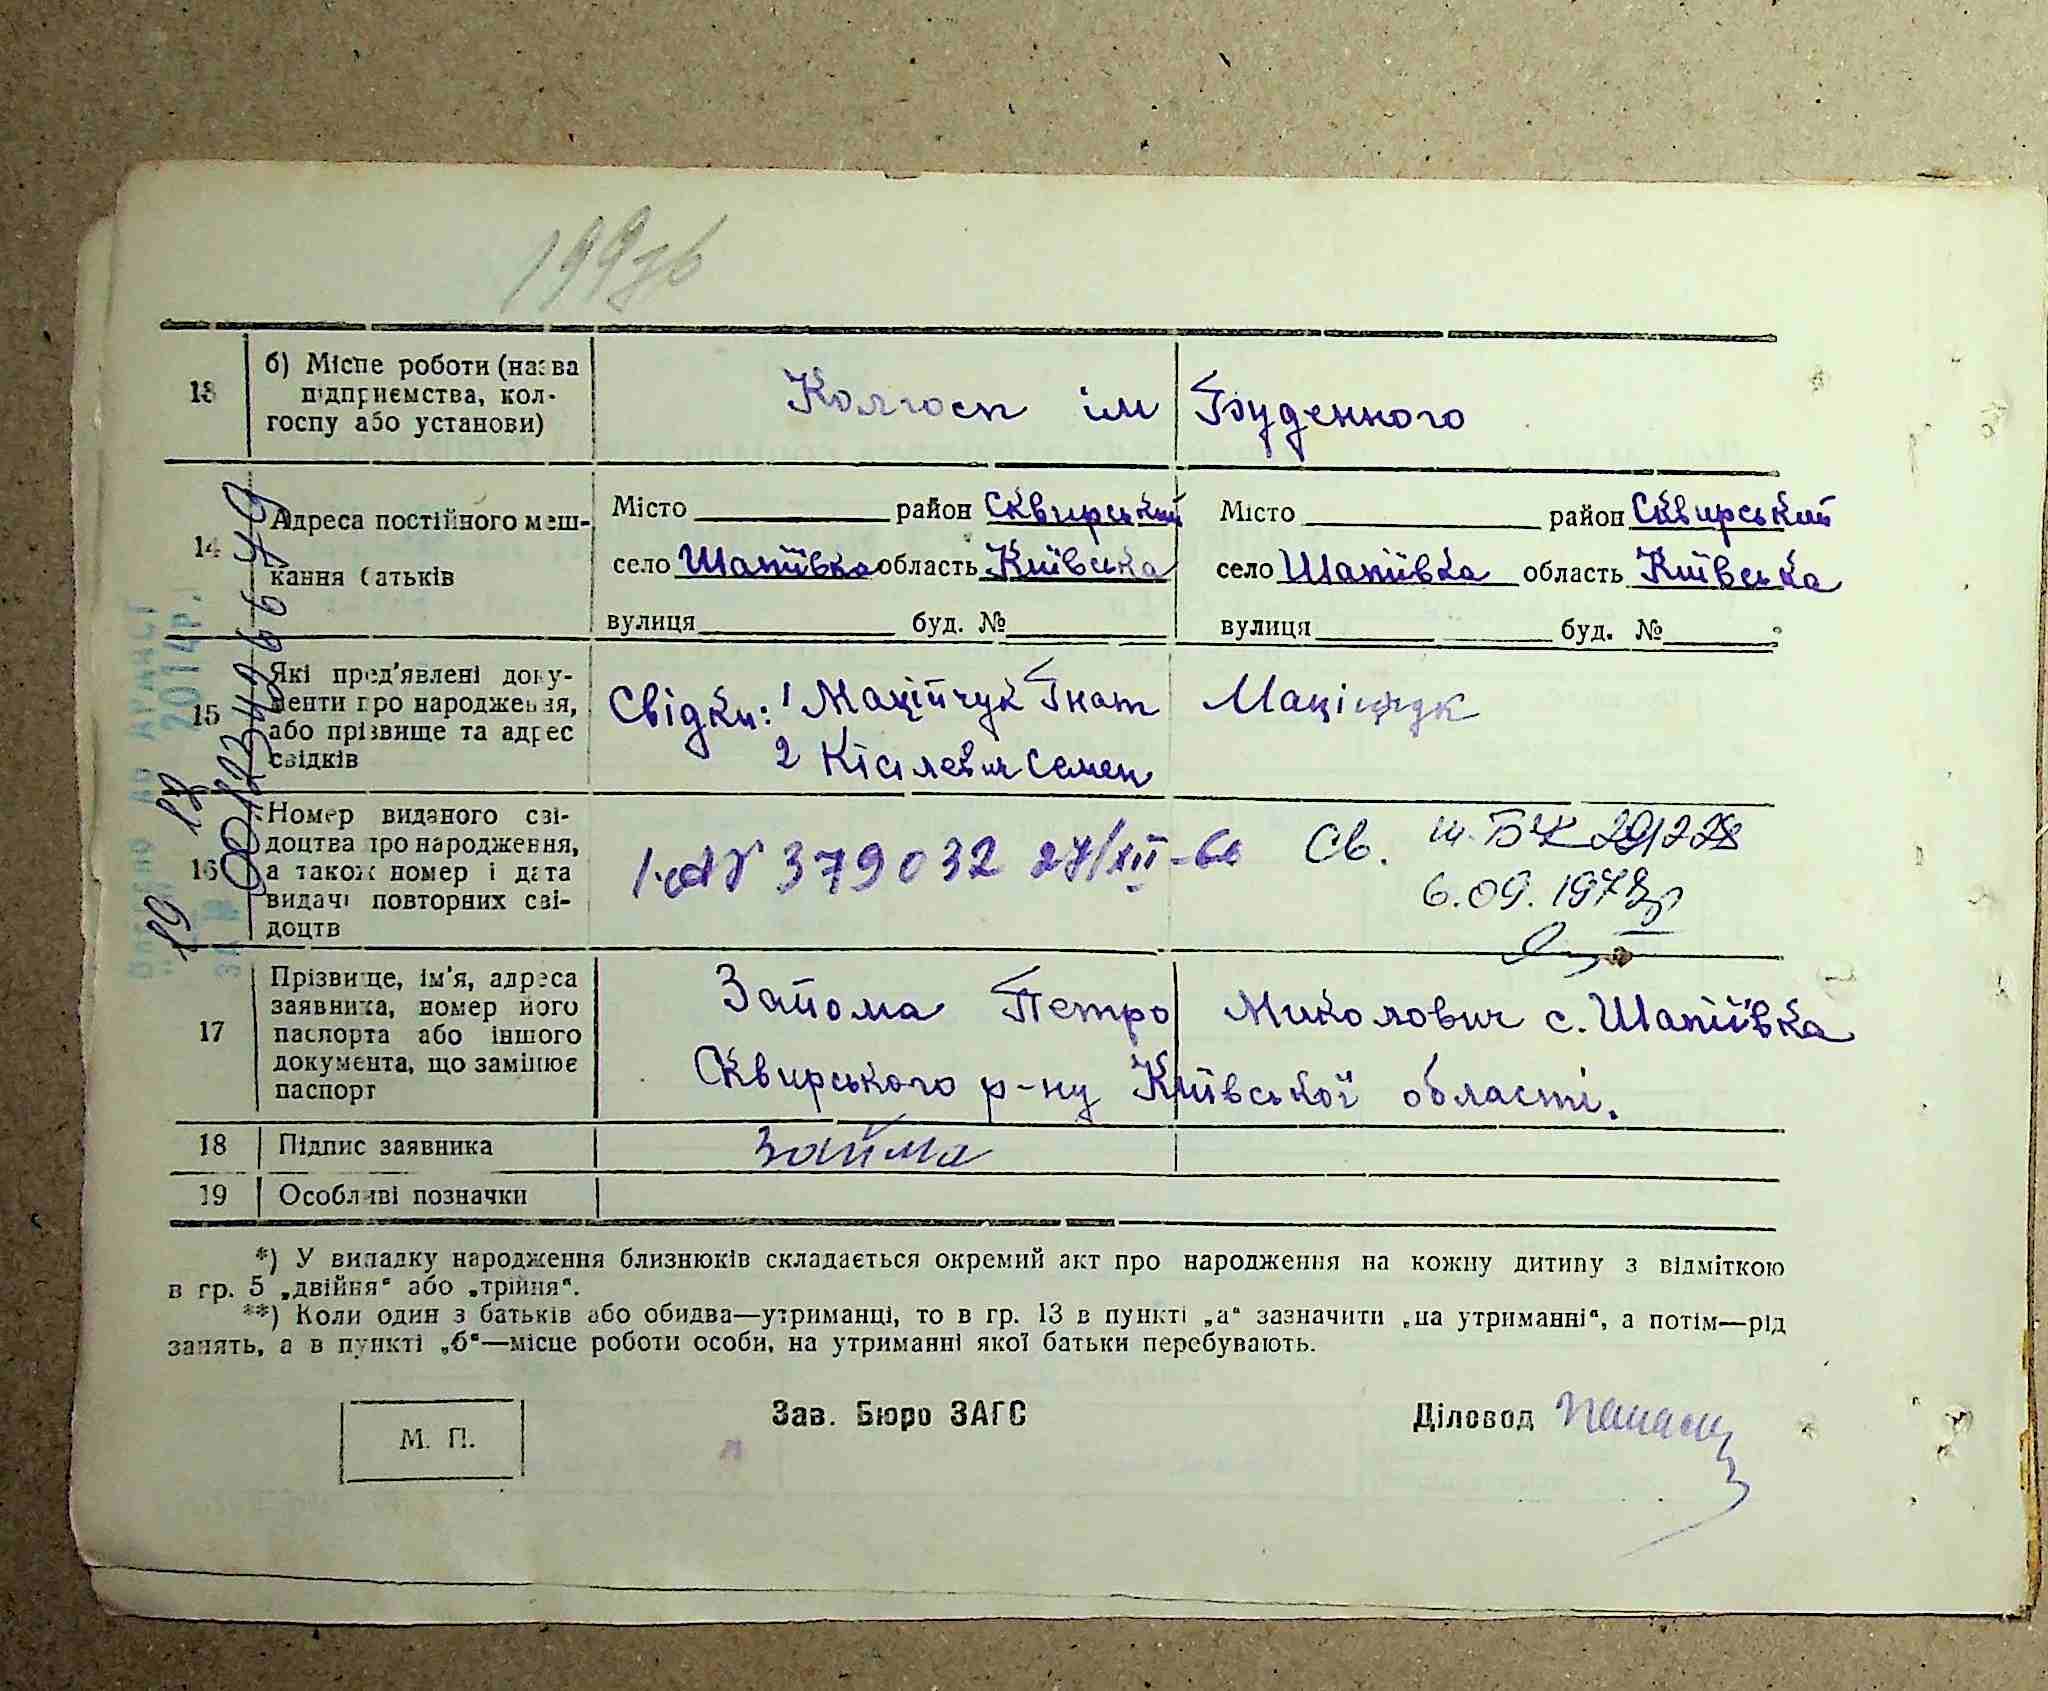 199зв
13 б) Місце роботи (назва підприємства, колгоспу або установи) Колгосп ім Буденного
14 Адреса постійного мешкання батьків
Місто район Сквирський Місто район Сквирський
село Шапіївка область Київська село Шапіївка область Київська
вулиця буд. № вулиця буд. №
15 Які пред'явлені документи про народження, або прізвище та адрес свідків
Свідки: 1 Маційчук Гнат Маційчук
2 Семен
16 Номер виданого свідоцтва про народження, а також номер і дата видачі повторних свідоцтв
379032 27/XII-60 Св.
6.09.1978р
17 Прізвище, ім'я, адреса заявника, номер його паспорта або іншого документа, що замінює паспорт
Зайома Петро Миколович с. Шапіївка
Сквирського р-ну Київської області.
18 Підпис заявника Займа
19 Особливі позначки
*) У випадку народження близнюків складається окремий акт про народження на кожну дитину з відміткою
в гр. 5 „двійня“ або „трійня“.
**) Коли один з батьків або обидва—утриманці, то в гр. 13 в пункті „а“ зазначити „на утриманні“, а потім—рід
занять, а в пункті „б“—місце роботи особи, на утриманні якої батьки перебувають.
М. П. Зав. Бюро ЗАГС Діловод
2014р.